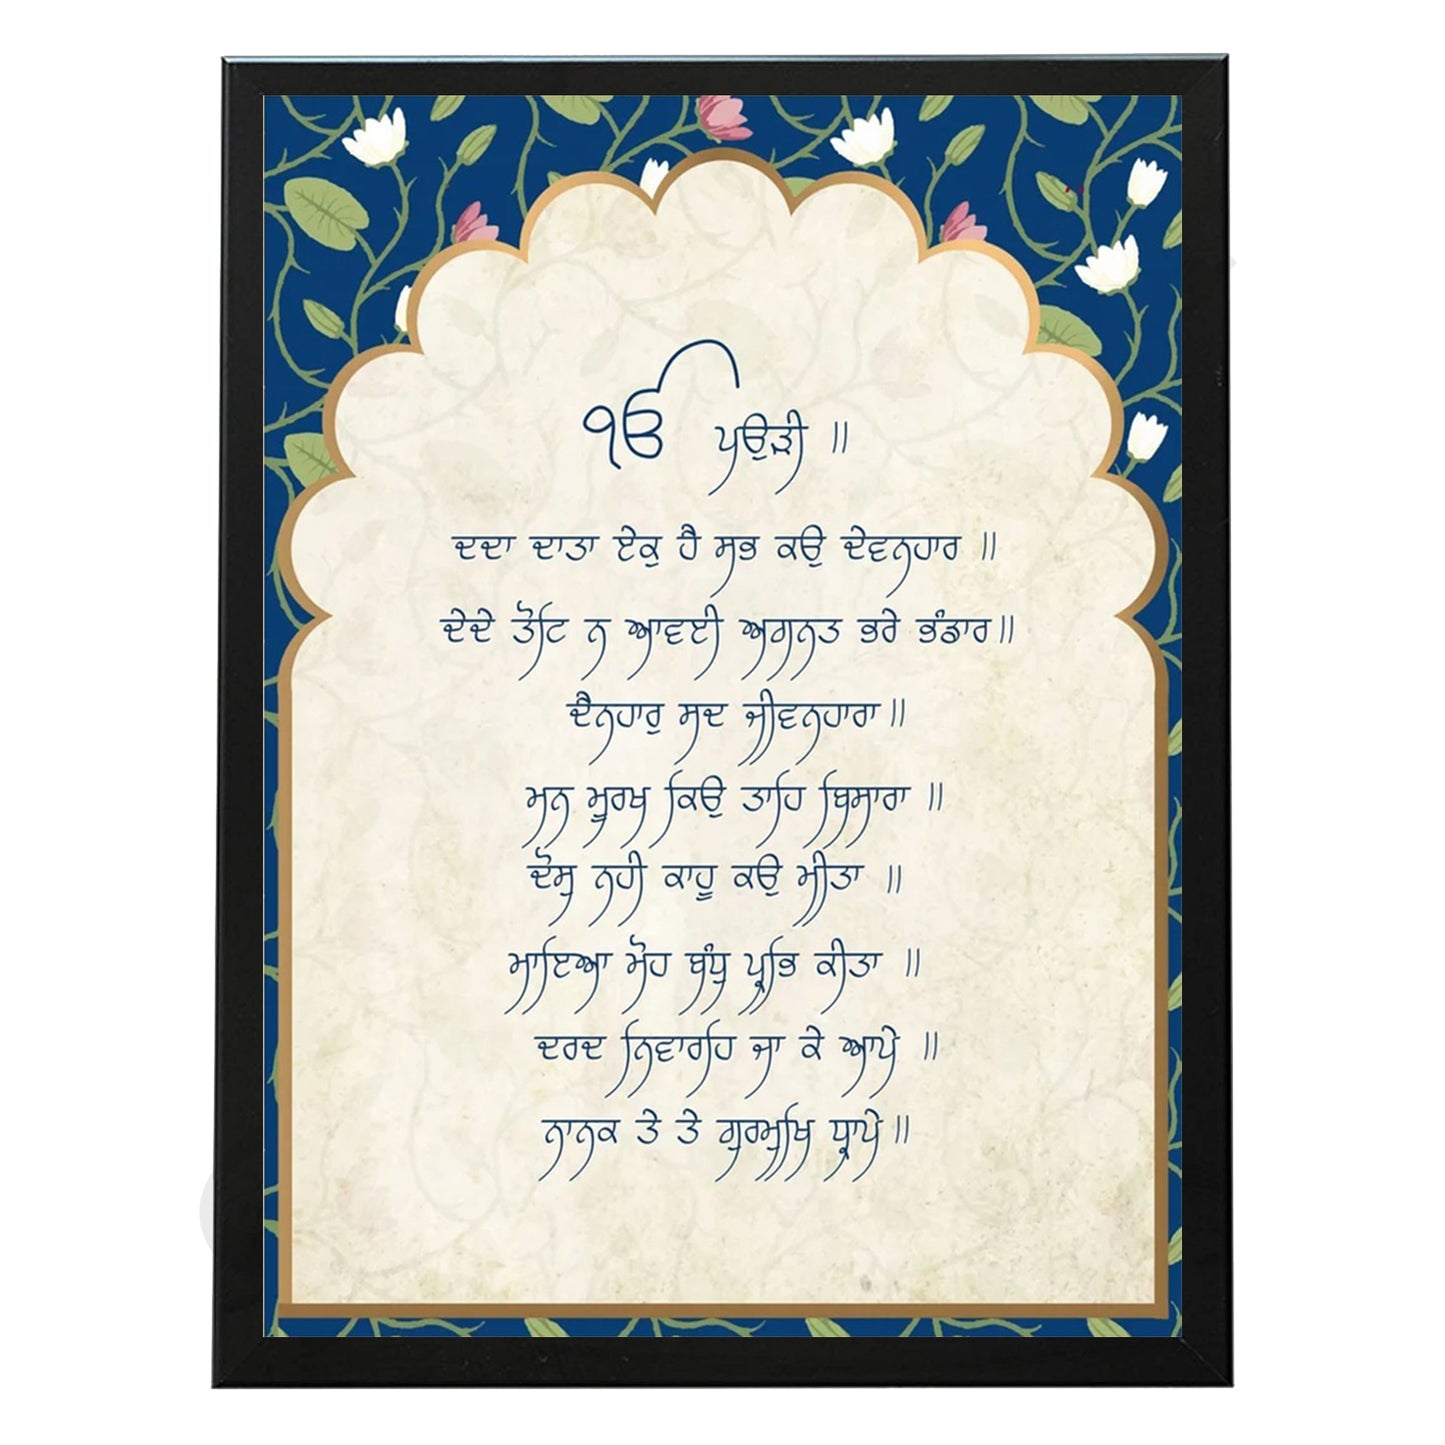 ੴ ਪਉੜੀ ॥
ਦਦਾ ਦਾਤਾ ਏਕੁ ਹੈ ਸਭ ਕਉ ਦੇਵਨਹਾਰ ॥
ਦੇਂਦੇ ਤੋਟਿ ਨ ਆਵਈ ਅਗਨਤ ਭਰੇ ਭੰਡਾਰ॥
ਦੈਨਹਾਰੁ ਸਦ ਜੀਵਨਹਾਰਾ॥
ਮਨ ਮੂਰਖ ਕਿਉ ਤਾਹਿ ਬਿਸਾਰਾ ॥
ਦੋਸੁ ਨਹੀ ਕਾਹੂ ਕਉ ਮੀਤਾ ॥
ਮਾਇਆ ਮੋਹ ਬੰਧੁ ਪ੍ਰਭਿ ਕੀਤਾ ॥
ਦਰਦ ਨਿਵਾਰਹਿ ਜਾ ਕੇ ਆਪੇ ॥
ਨਾਨਕ ਤੇ ਤੇ ਗੁਰਮੁਖਿ ਧ੍ਰਾਪੇ॥